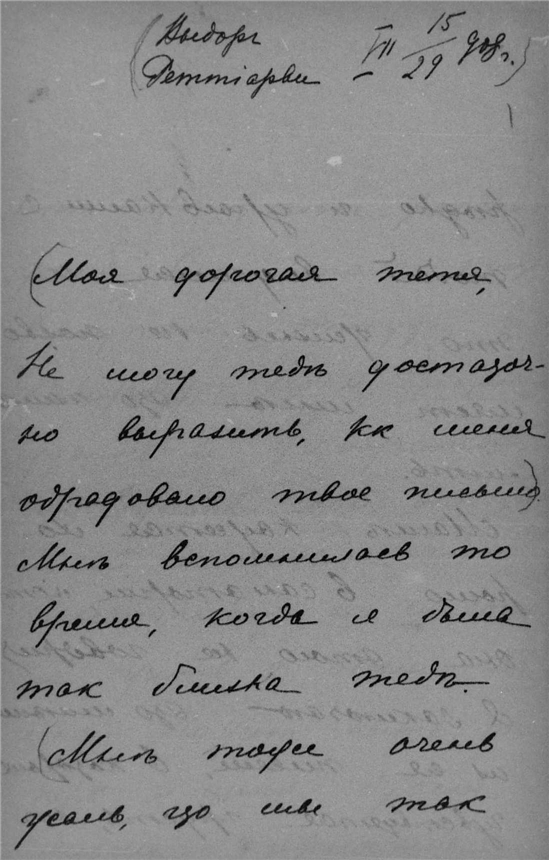 (Выборг
Реттіярви VII 15/29 908 г.)
(Моя дорогая тетя,
Не могу тебѣ достаточ-
но выразить, кк меня
обрадовало твое письмо).
Мнѣ вспомнилось то
время, когда я была
так близка тебѣ.
(Мнѣ тоже очень
жаль, що мы так